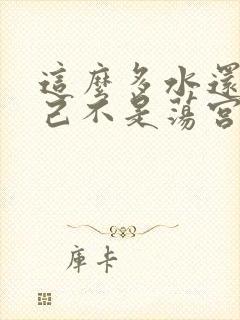 這麼多水還
己不是蕩宮
庫卡